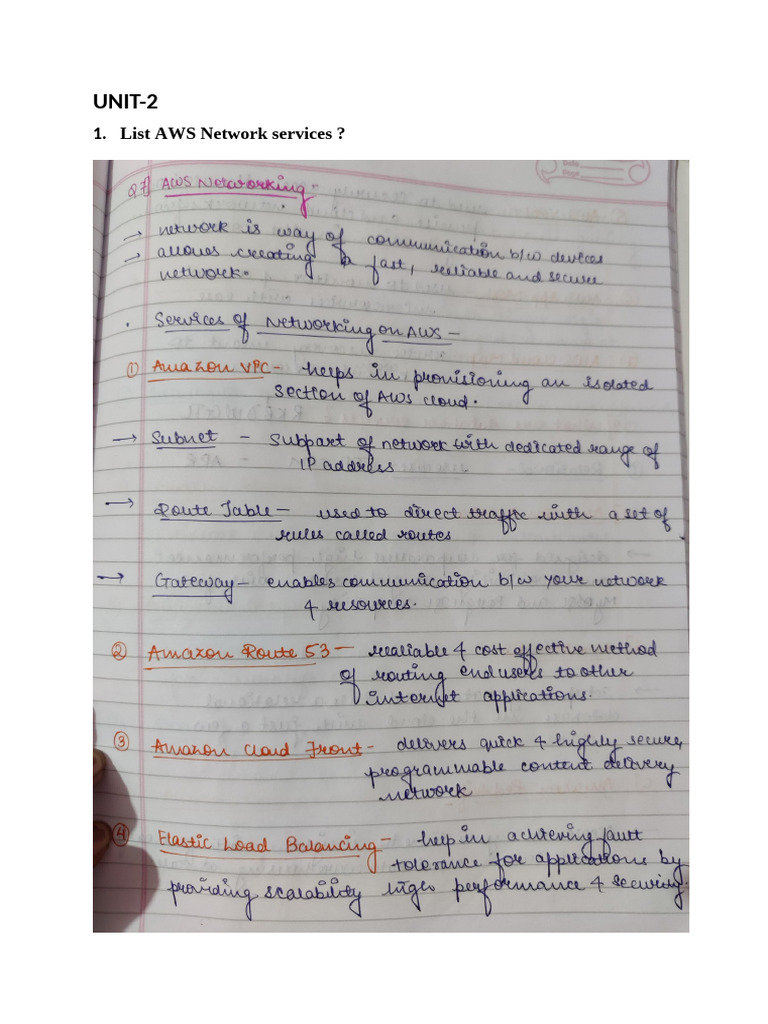 UNIT-2
1. List AWS Network services ?
Date
Page
Q7] AWS Networking -
→ network is way of communication b/w devices
→ allows creating a fast, realiable and secure
network.
. Services of Networking on AWS -
① Amazon VPC - helps in provisioning an isolated
section of AWS cloud.
→ Subnet - subpart of network with dedicated range of
IP address
→ Route Table - used to direct traffic with a set of
rules called routes
→ Gateway - enables communication b/w your network
& resources.
② Amazon Route 53 - realiable & cost effective method
of routing end users to other
internet applications.
③ Amazon Cloud Front - delivers quick & highly secure,
programmable content delivery
network
④ Elastic Load Balancing - help in achieving fault
tolerance for applications by
providing scalability, performance & security.